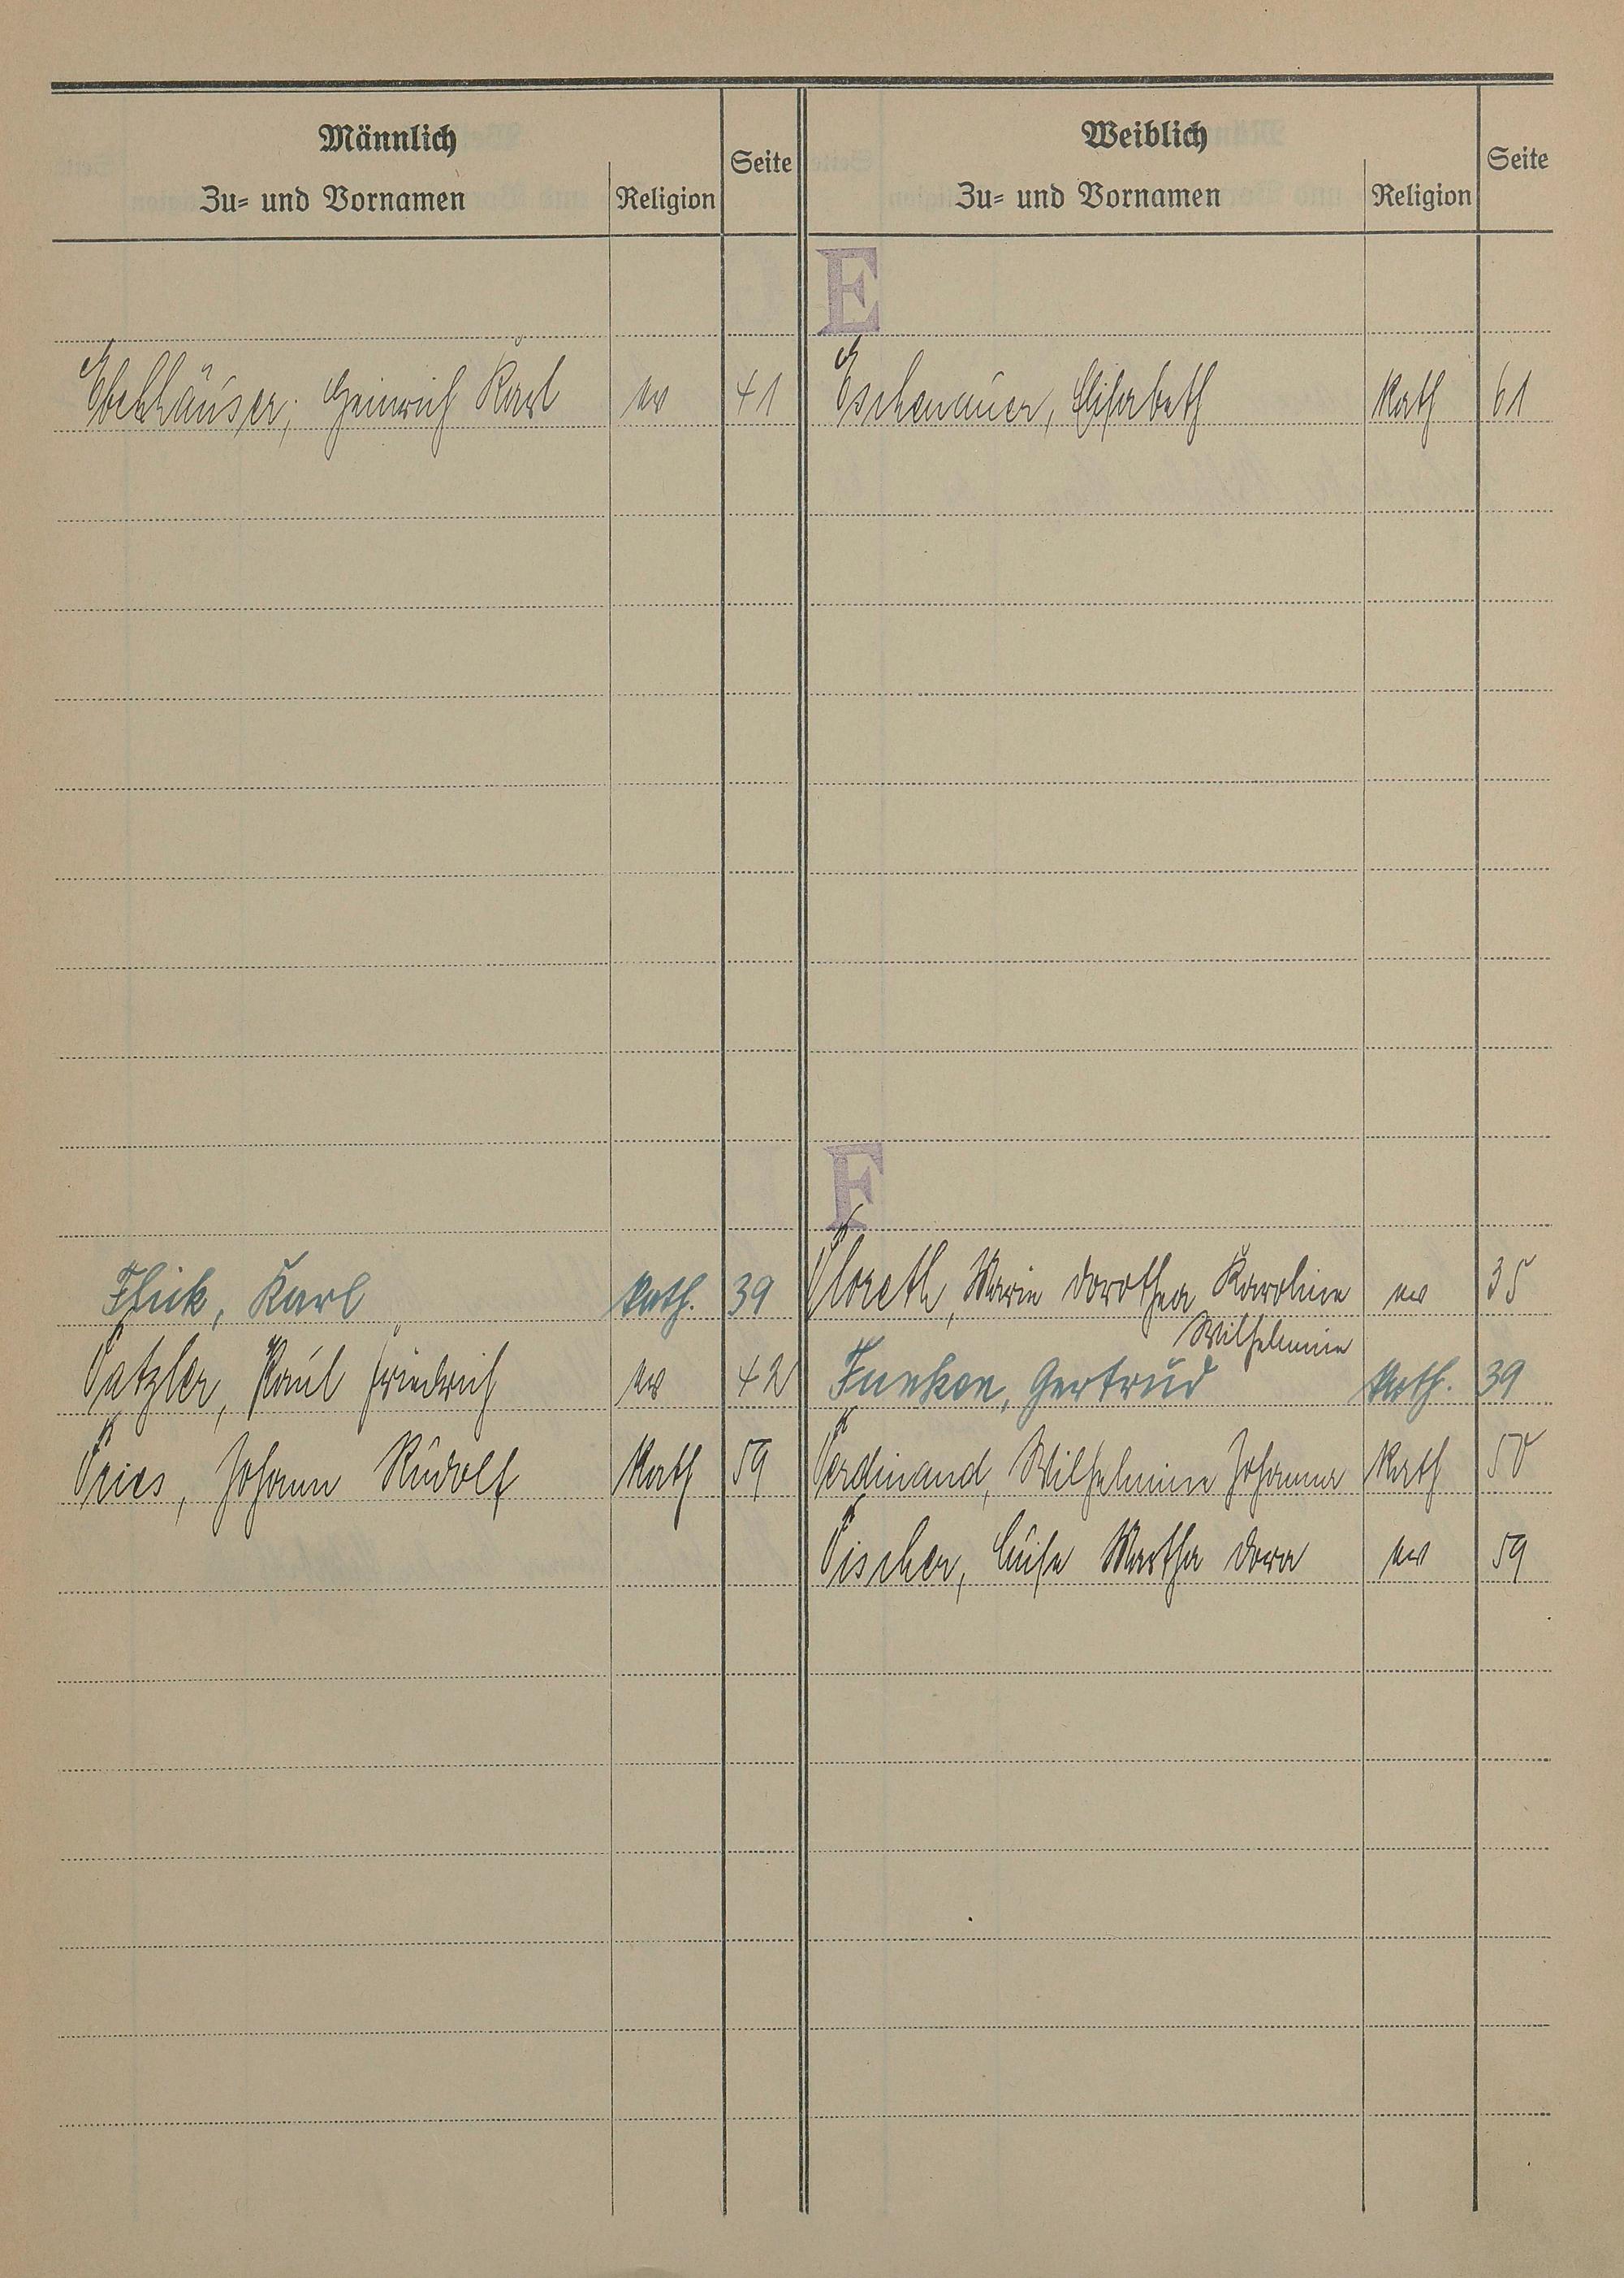 Männlich
Zu- und Vornamen
Religion
Seite
Weiblich
Zu- und Vornamen
Religion
Seite
E
Ebelhäuser, Heinrich Karl ev 41
Eschenauer, Elisabeth Kath 61
F
Flick, Karl Kath. 39
Floreth, Marie Dorothea Karoline ev 35
Wilhelmine
Fatzler, Paul Friedrich ev 42
Funken, Gertrud Kath. 39
Fries, Johann Rudolf Kath 59
Ferdinand, Wilhelmine Johanna Kath 50
Fischer, Luise Martha Dora ev 59